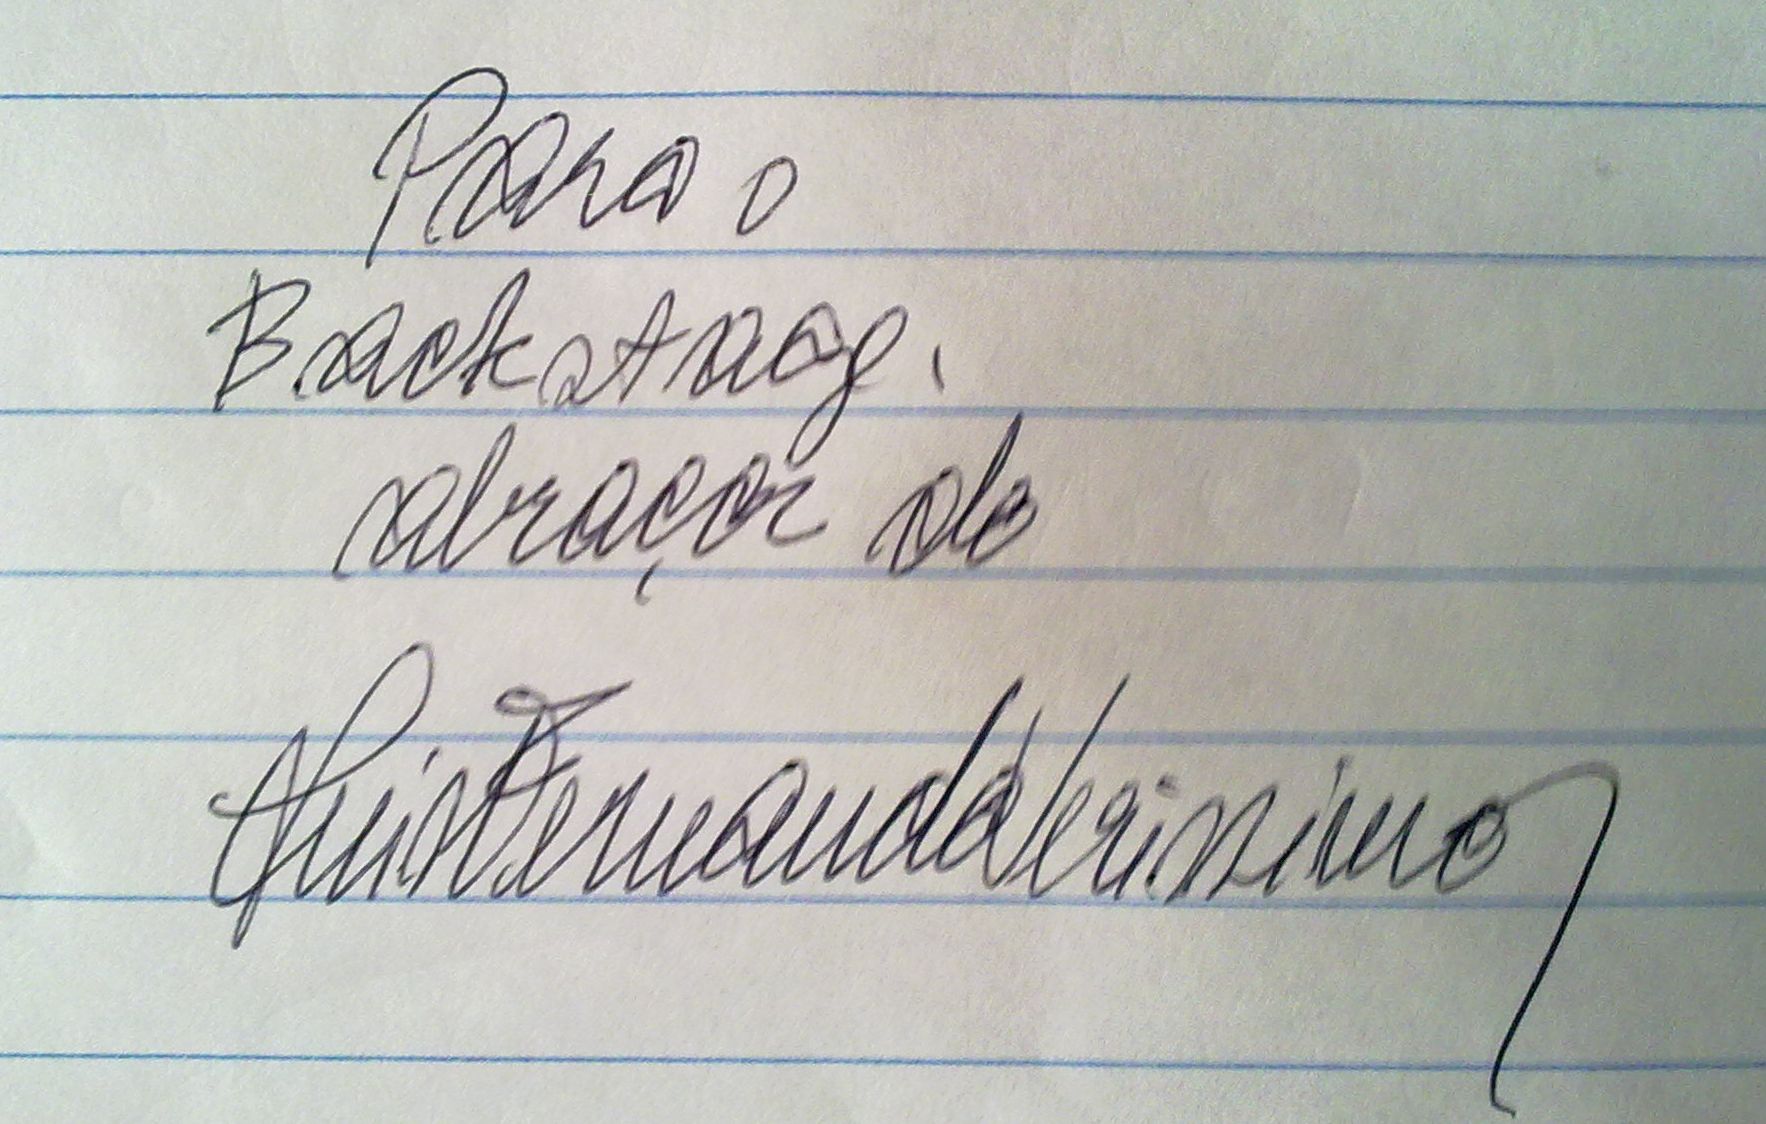 Para o
Backstage,
abraços do
Luis Fernando Verissimo